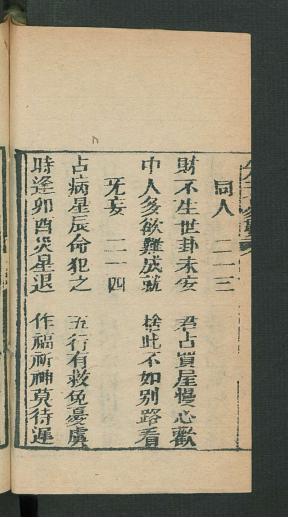 同人 二一三
財不生世卦未安 君占買屋慢心歡
中人多欲難成就 捨此不如别路看
旡妄 二一四
占病星辰命犯之 五行有救免憂虞
時逢卯酉災星退 作福祈神莫待遲